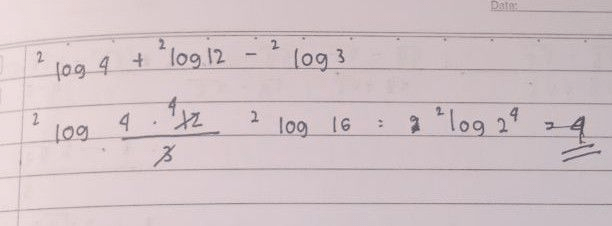 Date:
²log 4 + ²log 12 - ²log 3
²log 4 · ⁴12 / 3 ²log 16 = ²log 2⁴ = 4